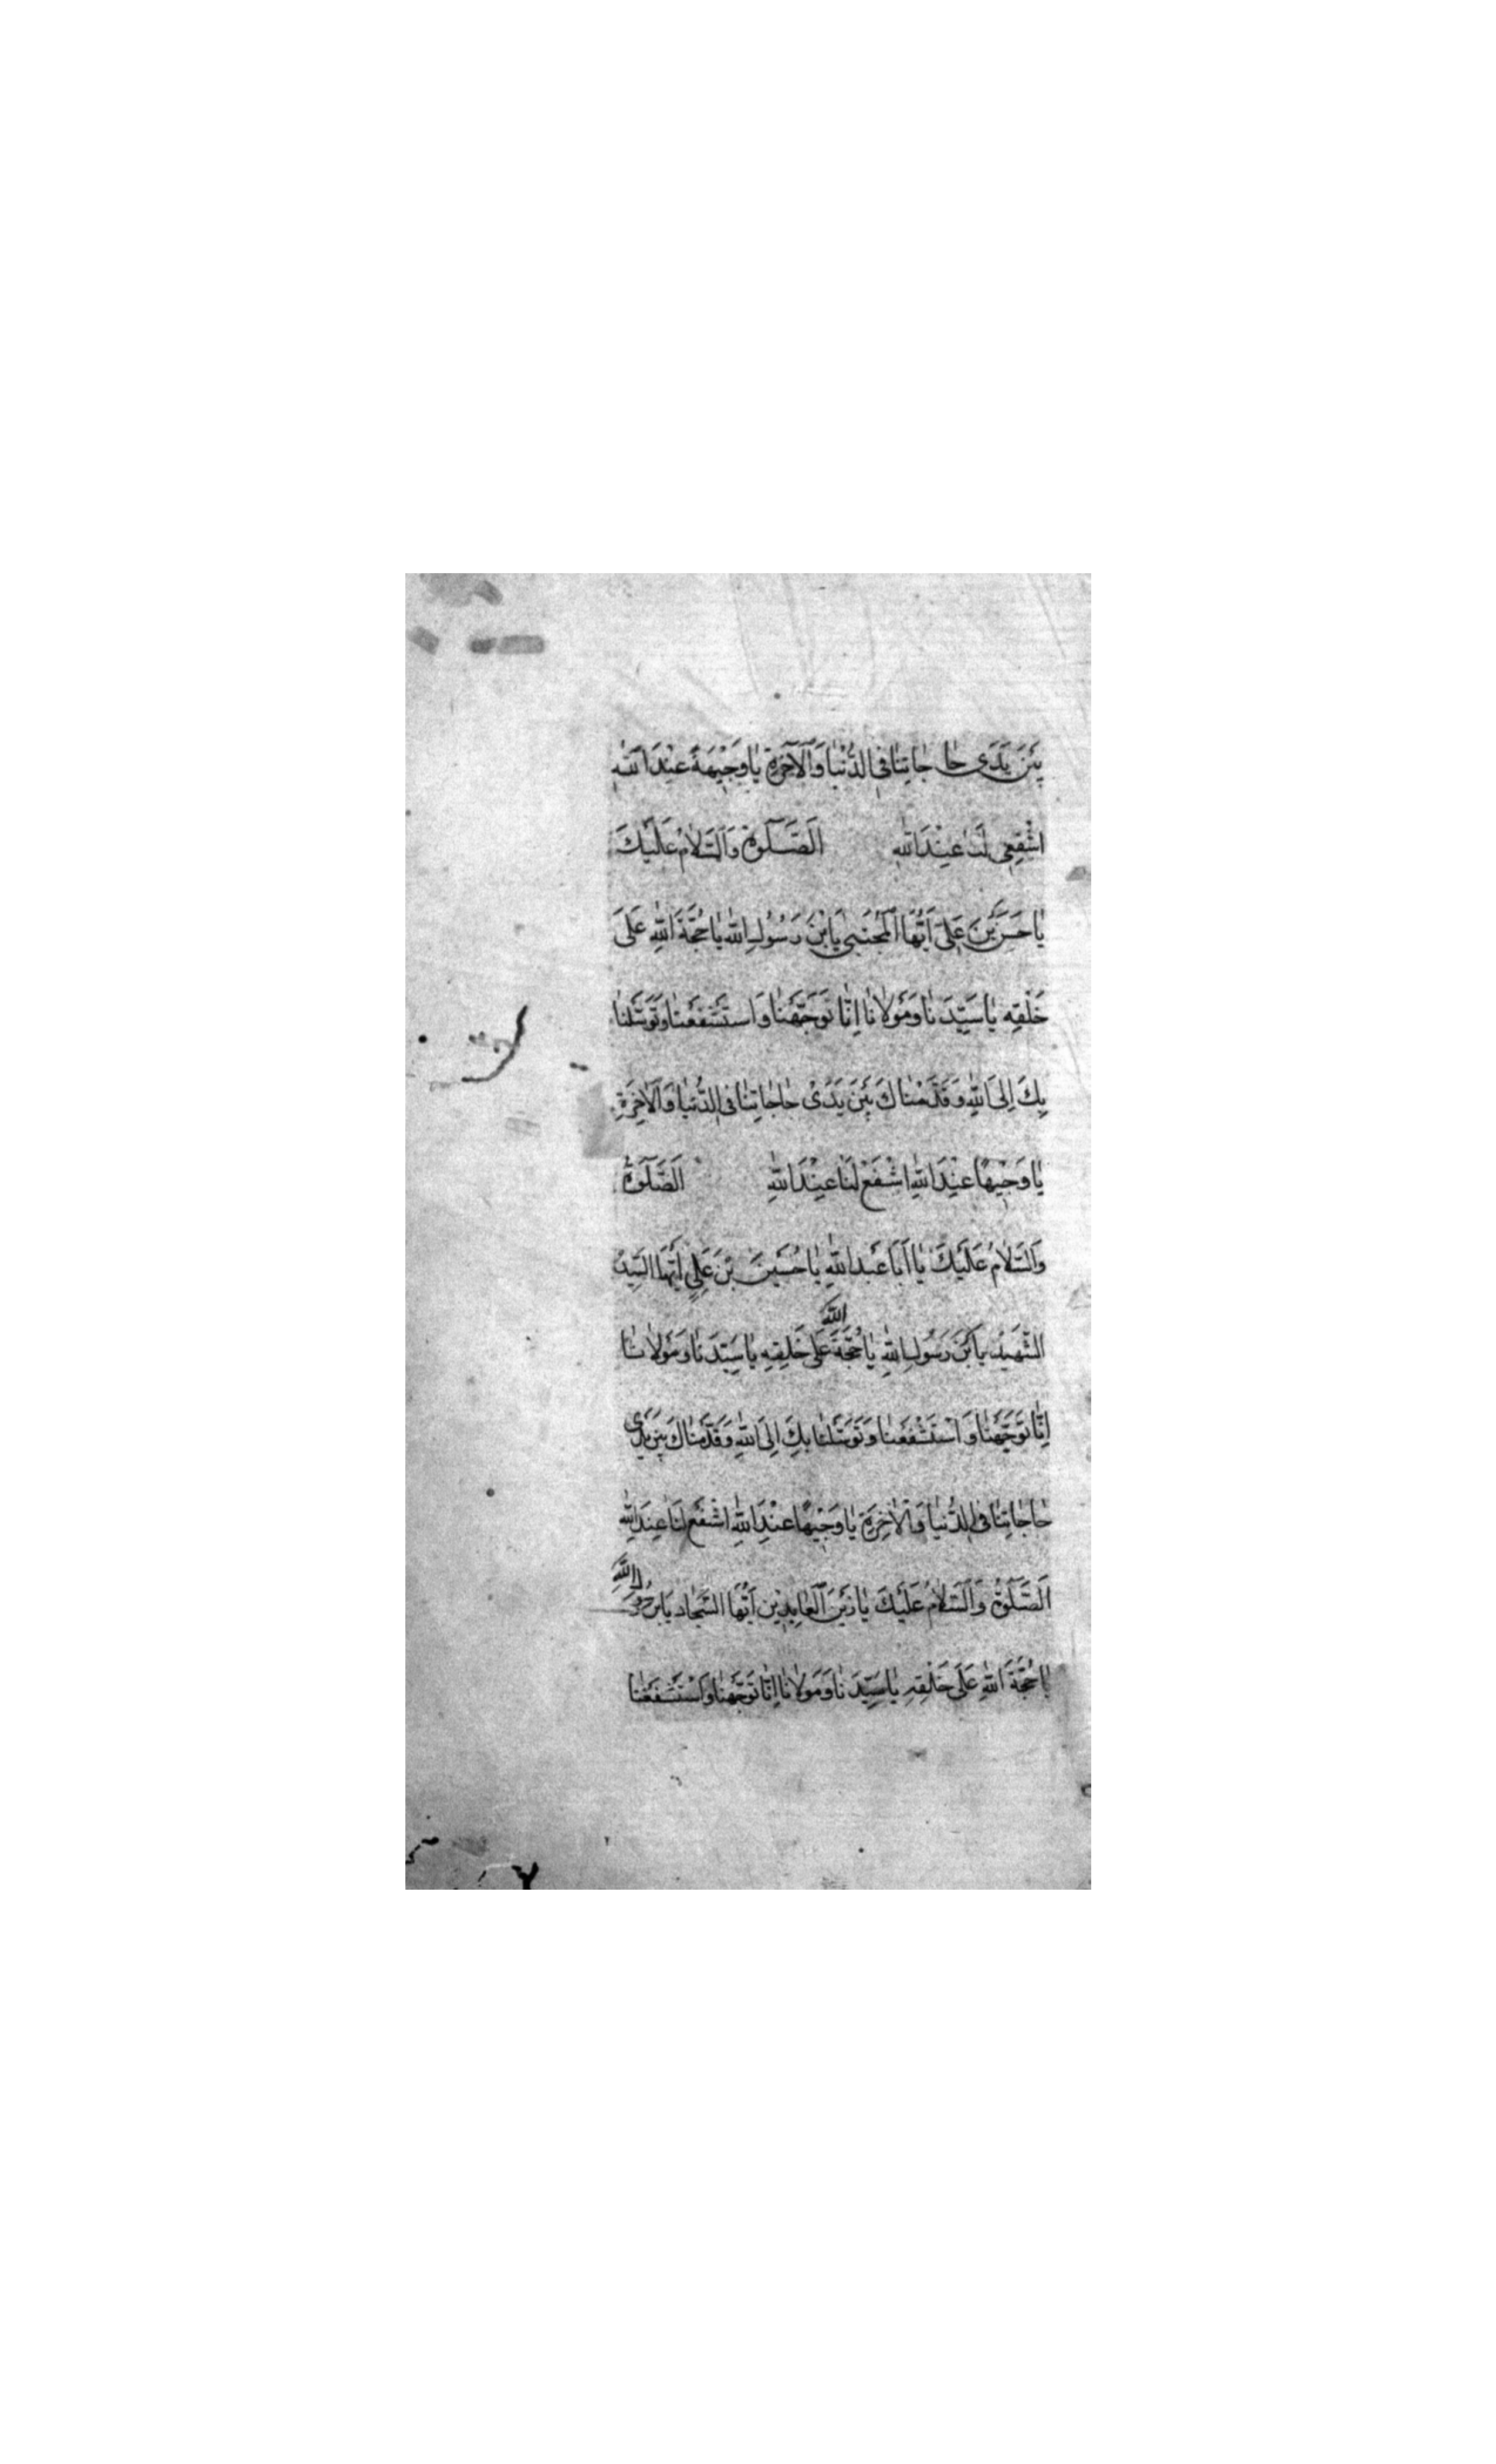 بَيْنَ يَدَى حٰا جٰاتِنٰا فِى الدُّنْيٰا وَالْآخِرَةِ يٰا وَجٖيهَةً عِنْدَ اللّٰهِ
اشْفَعٖى لَنٰا عِنْدَ اللّٰهِ اَلصَّلٰوةُ وَالسَّلٰامُ عَلَيْكَ
يٰا حَسَنَ بْنَ عَلِىٍّ اَيُّهَا الْمُجْتَبىٰ يَابْنَ رَسُولِ اللّٰهِ يٰا حُجَّةَ اللّٰهِ عَلىٰ
خَلْقِهٖ يٰا سَيِّدَنٰا وَمَوْلٰانٰا اِنّٰا تَوَجَّهْنٰا وَاسْتَشْفَعْنٰا وَتَوَسَّلْنٰا
بِكَ اِلَى اللّٰهِ وَقَدَّمْنٰاكَ بَيْنَ يَدَىْ حٰاجٰاتِنٰا فِى الدُّنْيٰا وَالْاٰخِرَةِ
يٰا وَجٖيهًا عِنْدَ اللّٰهِ اشْفَعْ لَنٰا عِنْدَ اللّٰهِ اَلصَّلٰوةُ
وَالسَّلٰامُ عَلَيْكَ يٰا اَبٰا عَبْدِ اللّٰهِ يٰا حُسَيْنَ بْنَ عَلِىٍّ اَيُّهَا السَّيِّدُ
الشَّهيدُ يَابْنَ رَسُولِ اللّٰهِ يٰا حُجَّةَ اللّٰهِ عَلىٰ خَلْقِهٖ يٰا سَيِّدَنٰا وَمَوْلٰانٰا
اِنّٰا تَوَجَّهْنٰا وَاسْتَشْفَعْنٰا وَتَوَسَّلْنٰا بِكَ اِلَى اللّٰهِ وَقَدَّمْنٰاكَ بَيْنَ يَدَى
حٰاجٰاتِنٰا فِى الدُّنْيٰا وَالْاٰخِرَةِ يٰا وَجٖيهًا عِنْدَ اللّٰهِ اشْفَعْ لَنٰا عِنْدَ اللّٰهِ
اَلصَّلٰوةُ وَالسَّلٰامُ عَلَيْكَ يٰا زَيْنَ الْعٰابِدٖينَ اَيُّهَا السَّجّٰادُ يَابْنَ رَسُولِ اللّٰهِ
يٰا حُجَّةَ اللّٰهِ عَلىٰ خَلْقِهٖ يٰا سَيِّدَنٰا وَمَوْلٰانٰا اِنّٰا تَوَجَّهْنٰا وَاسْتَشْفَعْنٰا